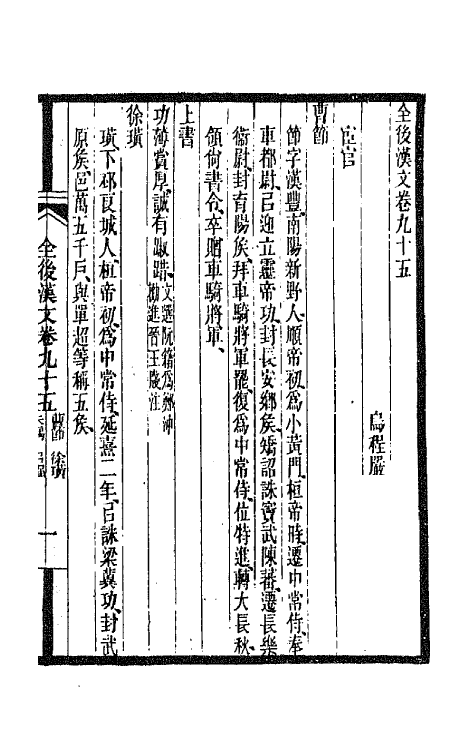 全後漢文卷九十五
烏程嚴
宦官
曹節
節字漢豐、南陽新野人、順帝初、爲小黃門、桓帝時、遷中常侍、奉
車都尉、㠯迎立靈帝功、封長安鄉矦、矯詔誅竇武陳蕃、遷長樂
衞尉、封育陽矦、拜車騎將軍、罷、復爲中常侍、位特進、轉大長秋、
領尚書令、卒、贈車騎將軍、
上書
功薄賞厚、誠有踧踖、文選阮籍爲鄭沖
勸進晉王牋注
徐璜
璜、下邳良城人、桓帝初、爲中常侍、延熹二年、㠯誅梁冀功、封武
原矦、邑萬五千戶、與單超等稱五矦、
全後漢文卷九十五 曹節 徐璜
一